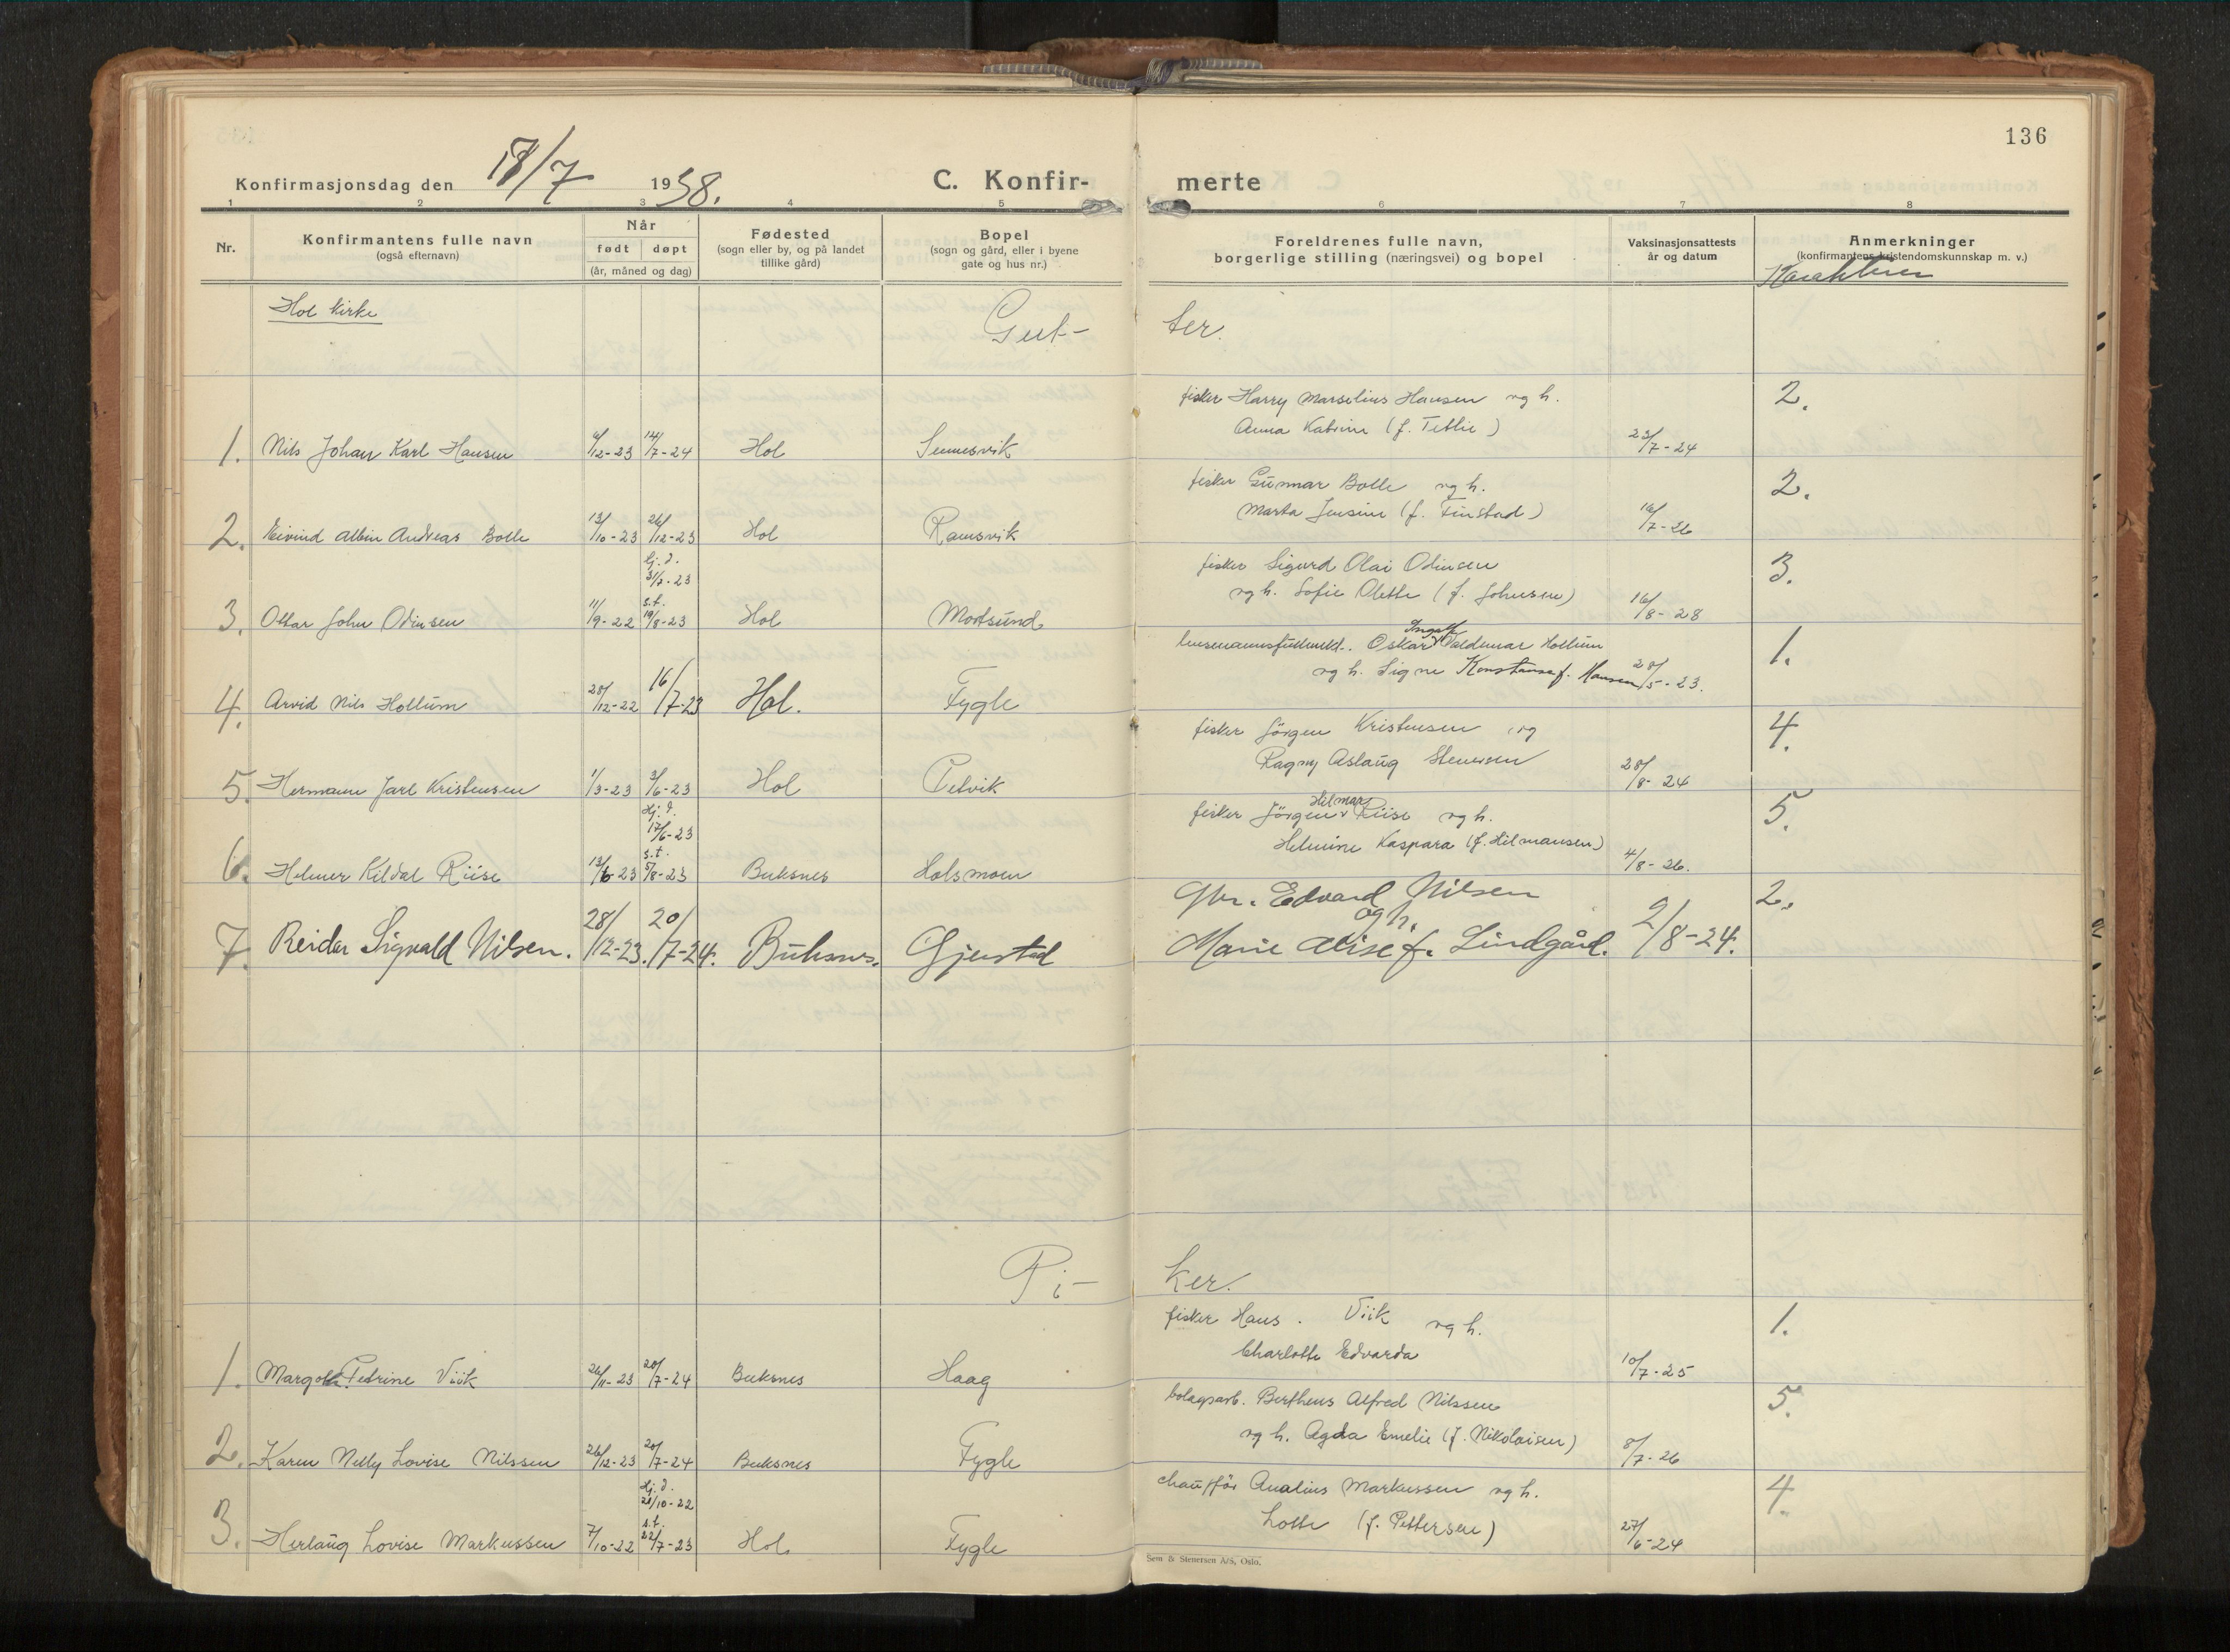 136
Konfirmasjonsdag den 17/7 1938. C. Konfir- merte
1 2 3 4 5 6 7 8
Nr. Konfirmantens fulle navn (også efternavn) Når født døpt (år, måned og dag) Fødested (sogn eller by, og på landet tillike gård) Bopel (sogn og gård, eller i byene gate og hus nr.) Foreldrenes fulle navn, borgerlige stilling (næringsvei) og bopel Vaksinasjonsattests år og datum Anmerkninger (konfirmantens kristendomskunnskap m. v.)
Karakterer
Hol kirke Gut- ter.
fisker Harry Marselius Hansen og h. 2.
1. Nils Johan Karl Hansen 6/12-23 14/7-24 Hol Sennesvik Anna Katrine (f. Tetlie) 23/7-24
fisker Gunnar Bolle og h. 2.
2. Eivind Albin Andreas Bolle 13/10-23 26/12-23 Hol Ramsvik Marta Jensine (f. Finstad) 16/7-26
Hj. d. 31/7-23 fisker Sigurd Olai Odinsen 3.
3. Ottar John Odinsen 11/9-22 s.t. 19/8-23 Hol Mortsund og h. Sofie Olette (f. Johnsen) 16/8-28
lensmannsfullmekt. Oskar Ingolf Valdemar Hollum 1.
4. Arvid Nils Hollum 28/12-22 16/7-23 Hol. Fygle og h. Signe Konstanse f. Hansen 28/5-23.
fisker Jörgen Kristensen og 4.
5. Hermann Jarl Kristensen 1/3-23 3/6-23 Hol Petvik Ragny Aslaug Stenersen 28/8-24
Hj. d. 17/6-23 fisker Jörgen Hilmar Riise og h. 5.
6. Helmer Kildal Riise 13/6-23 s.t. 5/8-23 Buksnes Holsmoen Helmine Kaspara (f. Hilmansen) 4/8-26.
Gbr. Edvard Nilsen og h. 2.
7. Reidar Sigvald Nilsen. 28/12-23. 20/7-24. Buksnes. Gjerstad Marie Alise f. Lindgård. 2/8-24.
Pi- ker.
fisker Hans. Viik og h. 1.
1. Margothe Petrine Viik 26/11-23 20/7-24 Buksnes Haag Charlotte Edvarda 10/7-25
bolagsarb. Bertheus Alfred Nilssen 5.
2. Karen Nelly Lovise Nilssen 26/12-23 20/7-24 Buksnes Fygle og h. Agda Emelie (f. Nikolaisen) 8/7-26
Hj. d. 28/10-22 chaufför Analius Markussen og h. 4.
3. Herlaug Lovise Markussen 7/10-22 s.t. 22/7-23 Hol. Fygle Lotte (f. Pettersen) 27/6-24
Sem & Stenersen A/S, Oslo.